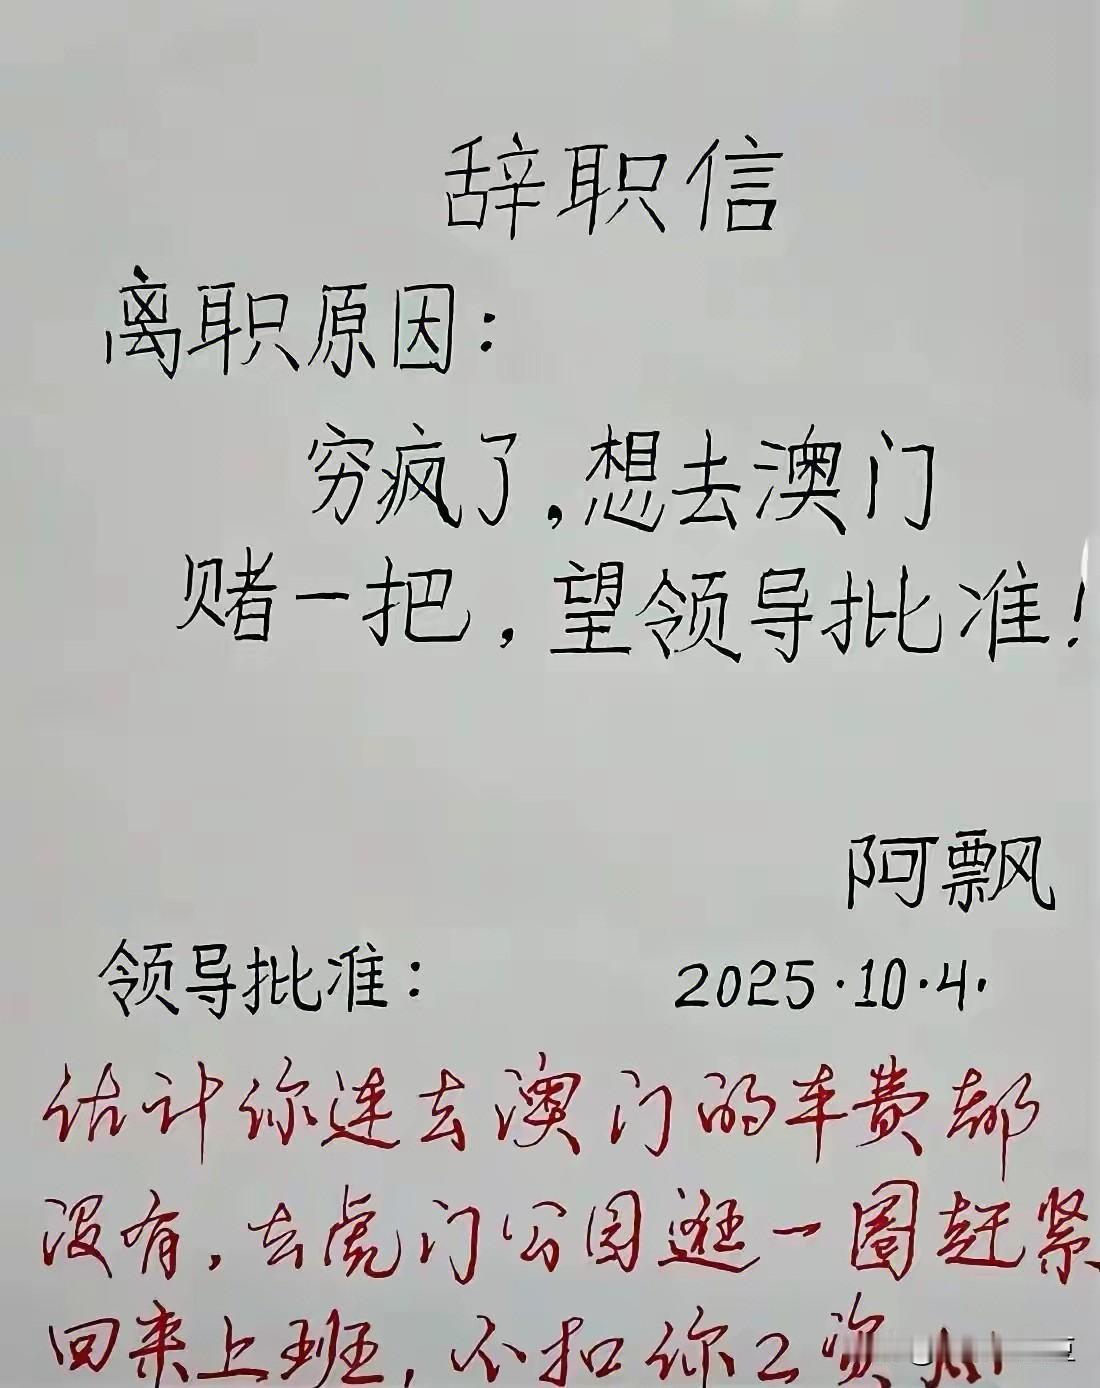 辞职信
离职原因：
穷疯了，想去澳门
赌一把，望领导批准！
阿飘
领导批准： 2025.10.4.
估计你连去澳门的车费都
没有，去虎门公园逛一圈赶紧
回来上班，不扣你工资